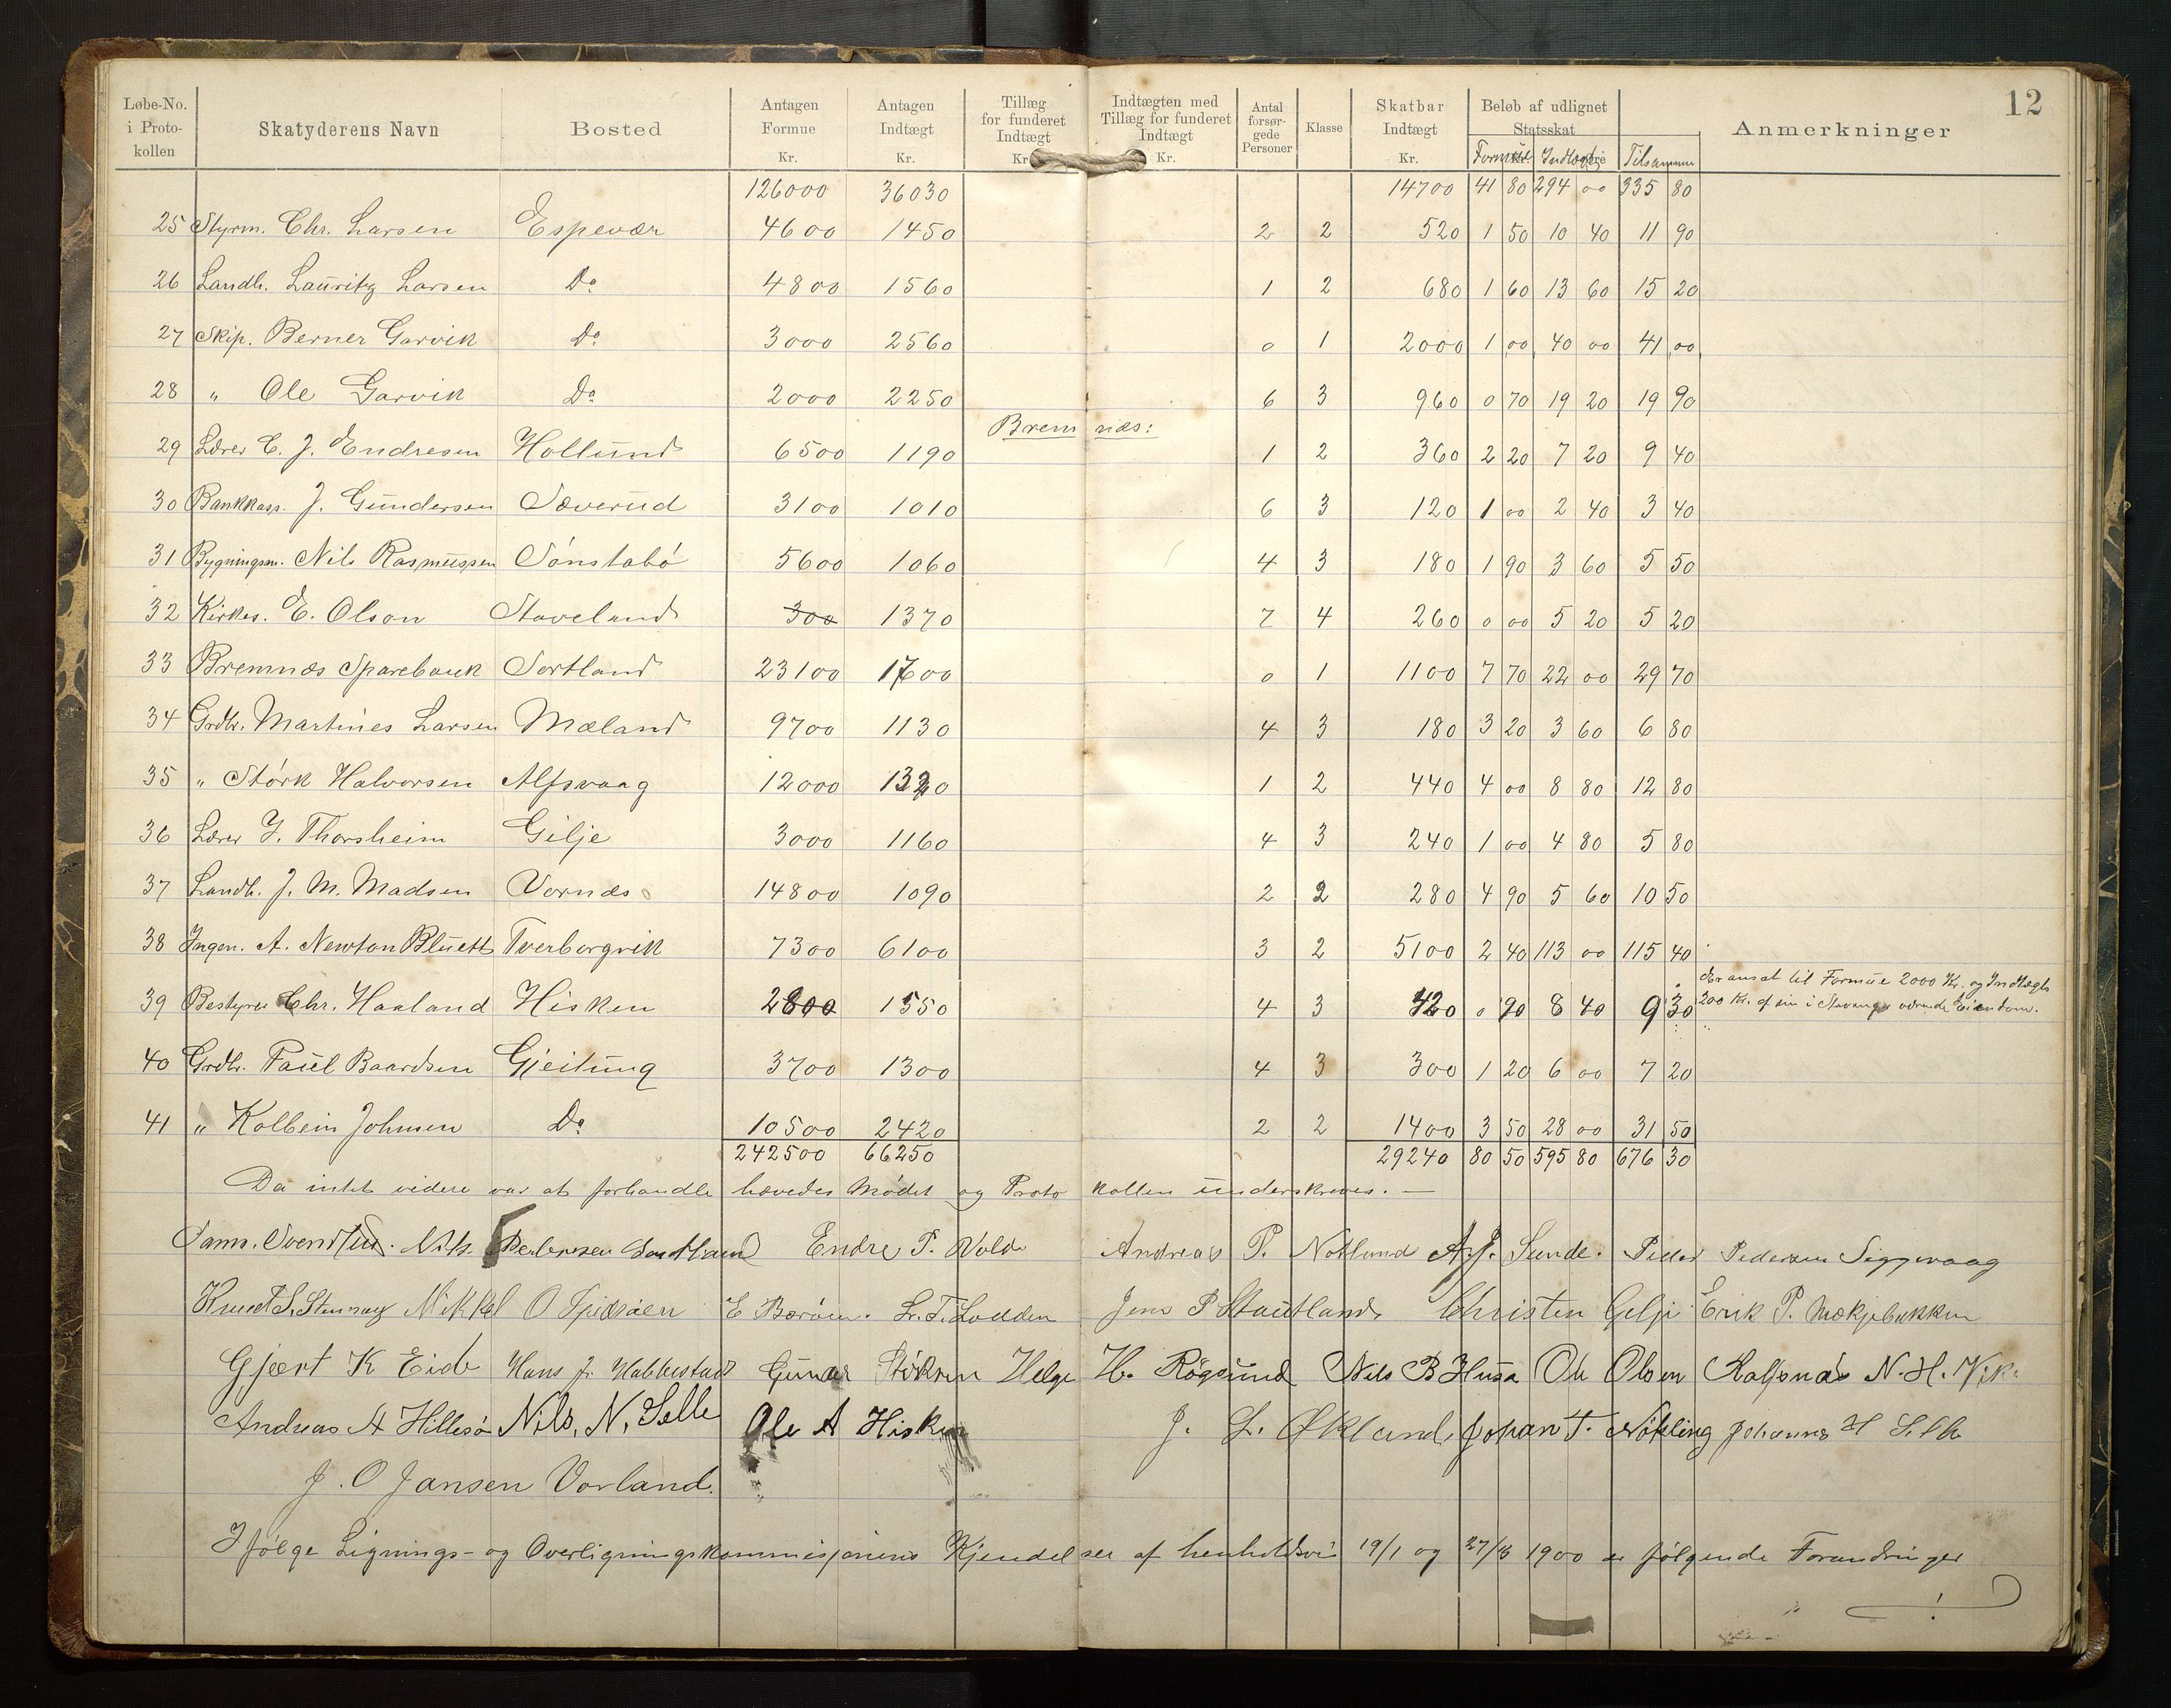 12
Løbe-No. i Proto-kollen | Skatyderens Navn | Bosted | Antagen Formue Kr. | Antagen Indtægt Kr. | Tillæg for funderet Indtægt Kr. | Indtægten med Tillæg for funderet Indtægt Kr. | Antal forsør-gede Personer | Klasse | Skatbar Indtægt Kr. | Beløb af udlignet Statsskat | Formue | Indtægt | Tilsammen | Anmerkninger
126000 36030 14700 41 80 294 00 335 80
25 Styrm. Chr. Larsen Espevær 4600 1450 2 2 520 1 50 10 40 11 90
26 Landh. Lauritz Larsen Do 4800 1560 1 2 680 1 60 13 60 15 20
27 Skip. Berner Garvik Do 3000 2560 0 1 2000 1 00 40 00 41 00
28 " Ole Garvik Do 2000 2250 6 3 960 0 70 19 20 19 90
Bremnæs:
29 Lærer C. J. Endresen Hollund 6500 1190 1 2 360 2 20 7 20 9 40
30 Bankkass. J. Gundersen Sæverud 3100 1010 6 3 120 1 00 2 40 3 40
31 Bygningsm. Nils Rasmussen Sónstabó 5600 1060 4 3 180 1 90 3 60 5 50
32 Kirkes. E. Olson Staveland 300 1370 7 4 260 0 00 5 20 5 20
33 Bremnæs Sparebank Sortland 23100 1600 0 1 1100 7 70 22 00 29 70
34 Grdbr. Martines Larsen Mæland 9700 1130 4 3 180 3 20 3 60 6 80
35 " Størk Halvorsen Alfsvaag 12000 1320 1 2 440 4 00 8 80 12 80
36 Lærer J. Thorsheim Gilje 3000 1160 4 3 240 1 00 4 80 5 80
37 Landh. J. M. Madsen Vornæs 14800 1090 2 2 280 4 90 5 60 10 50
38 Ingen. A. Newton Bluett Tverborgvik 7300 6100 3 2 5100 2 40 113 00 115 40
39 Bestyrer Chr. Haaland Hisken 2800 1550 4 3 420 0 90 8 40 9 30 Er ansat til Formue 2000 Kr. og Indtægt
200 Kr. af sin i Stavanger værende Eiendom.
40 Grdbr. Paul Baardsen Gjeitung 3700 1300 4 3 300 1 20 6 00 7 20
41 " Kolbein Johnsen Do 10500 2420 2 2 1400 3 50 28 00 31 50
242500 66250 29240 80 50 595 80 676 30
Da intet videre var at forhandle hævedes Mødet og Protokollen underskreves. —
Sam. Svendsen. Nils Pedersen Sortland Endre T. Wold Andreas P. Notland A. J. Sunde. Peder Pedersen Siggevaag
Knut S. Mikkel O E Børóen. L. T. Lodden Jens P Stautland Christen Gilje Erik P. Mækjebækken
Gjært K Eide Hans J. Habbestad Gunar Størksen Helge H. Røgsund Nils B Husa Ole Olsen Kalfsnæs N. H. Vik
Andreas A Hillesø Nils, N, Selle Ole A Hisken J. L. Økland, Johan T. Nøkling Johannes H Selle
J. O Jansen Vorland.
Ifølge Lignings- og Overligningskommissionens Kjendelser af henholdsvis 19/1 og 27/3 1900 er følgende Forandringer